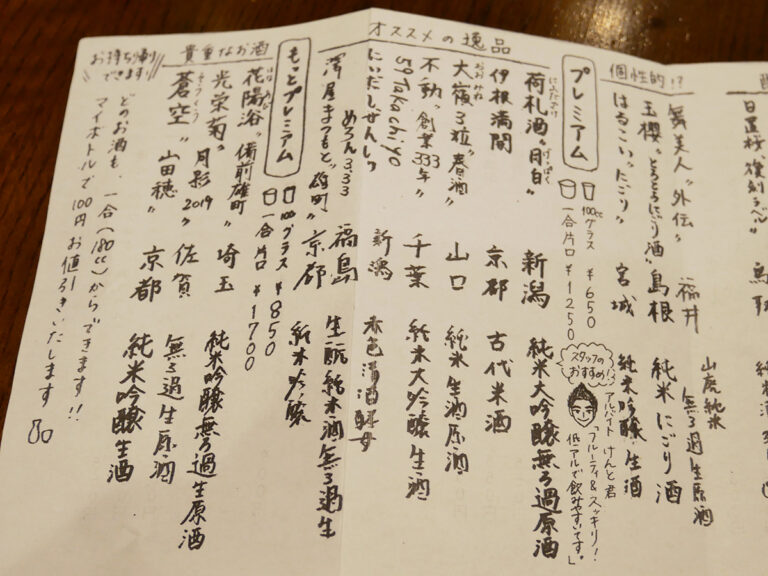 日置桜"復刻ラベル"
個性的!?
舞美人"外伝" 福井 山廃純米
無ろ過生原酒
玉櫻"とろとろにごり酒" 島根 純米にごり酒
はるこい"にごり" 宮城 純米吟醸生酒
オススメの逸品
プレミアム
100ccグラス ¥650
一合片口 ¥1250
スタッフの
おすすめ
アルバイト けんと君
「フルーティ&スッキリ!
低アルで飲みやすいです。」
荷札酒"月白" 新潟 純米大吟醸無ろ過原酒
にふだざけ げっぱく
伊根満開 京都 古代米酒
大嶺3粒"春酒" 山口 純米生酒原酒
おおみね
不動"創業333年" 千葉 純米大吟醸生酒
59Takachiyo 新潟
にいだしぜんしゅ
めろん3.33 福島 生酛純米酒無ろ過生
澤屋まつもと"雄町" 京都 純米吟醸
貴重なお酒
もっとプレミアム
100ccグラス ¥850
一合片口 ¥1700
花陽浴"備前雄町" 埼玉 純米吟醸無ろ過生原酒
はなあび
光栄菊"月影2019" 佐賀 無ろ過生原酒
蒼空"山田穂" 京都 純米吟醸生酒
そうくう
お持ち帰り
できます!
どのお酒も、一合(180cc)からできます!!
マイボトルで100円お値引きいたします